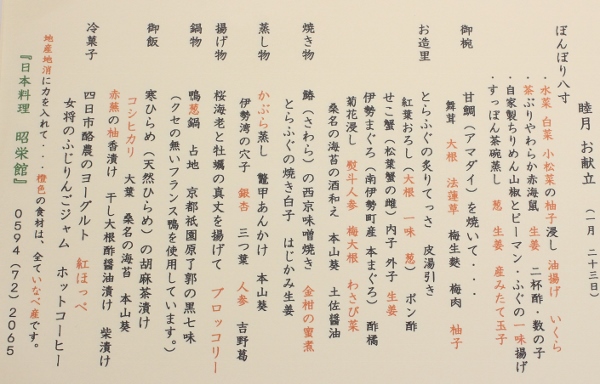 睦月 お献立 (一月 二十三日)
ぼんぼり八寸
・水菜 白菜 小松菜の柚子浸し 油揚げ いくら
・茶ぶりやわらか赤海鼠 生姜 二杯酢・数の子
・自家製ちりめん山椒とピーマン・ふぐの一味揚げ
・すっぽん茶碗蒸し 葱 生姜 産みたて玉子
御椀 甘鯛(アマダイ)を焼いて・・・
舞茸 大根 法蓮草 梅生麩 梅肉 柚子
お造里 とらふぐの炙りてっさ 皮湯引き
紅葉おろし(大根 一味 葱) ポン酢
せこ蟹(松葉蟹の雌)内子 外子 生姜
伊勢まぐろ(南伊勢町産 本まぐろ) 酢橘
菊花浸し 熨斗人参 梅大根 わさび菜
桑名の海苔の酒和え 本山葵 土佐醤油
焼き物 鰆(さわら)の西京味噌焼き 金柑の蜜煮
とらふぐの焼き白子 はじかみ生姜
蒸し物 かぶら蒸し 鼈甲あんかけ 本山葵
伊勢湾の穴子 銀杏 三つ葉 人参 吉野葛
揚げ物 桜海老と牡蠣の真丈を揚げて ブロッコリー
鍋物 鴨葱鍋 占地 京都祇園原了郭の黒七味
(クセの無いフランス鴨を使用しています。)
御飯 寒ひらめ(天然ひらめ)の胡麻茶漬け
コシヒカリ 大葉 桑名の海苔 本山葵
赤蕪の柚香漬け 干し大根酢醤油漬け 柴漬け
冷菓子 四日市酪農のヨーグルト 紅ほっぺ
女将のふじりんごジャム ホットコーヒー
地産地消に力を入れて・・・橙色の食材は、全ていなべ産です。
『日本料理 昭栄館』 0594(72)2065